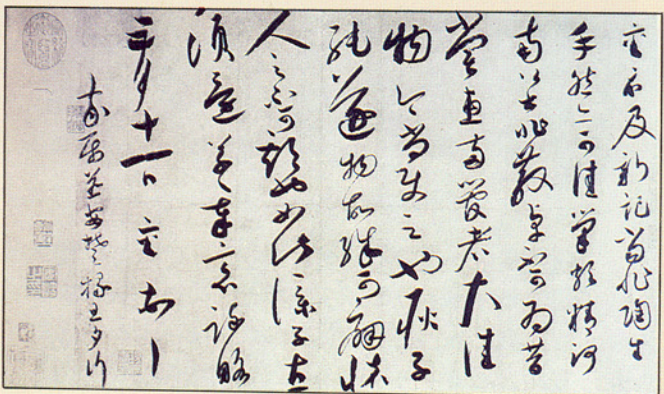 襄示及新記當非陶生
手然亦可佳筆頗精
非散卓不可為昔
嘗惠兩管者大佳
物今尚使之也耿子
純遂物故殊可痛懷
人之不可期也如此僕子直
須還草草奉意疏略
正月十一日襄頓首
家屬並安楚掾旦夕行